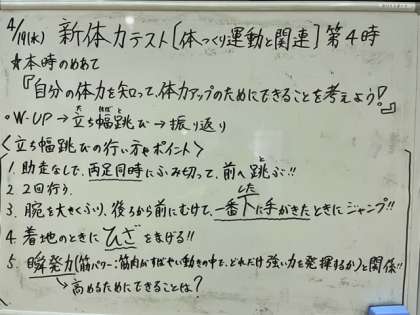 4/19(水) 新体力テスト[体つくり運動と関連] 第4時
★本時のめあて
『自分の体力を知って、体力アップのためにできることを考えよう!』
○W-UP→立ち幅跳び→振り返り
た はば と
<立ち幅跳びの行い方やポイント>
1. 助走なしで、両足同時にふみ切って、前へ跳ぶ!!
と
2. 2回行う。
3. 腕を大きくふり、後ろから前にむけて、一番下に手がきたときにジャンプ!!
した
4. 着地のときにひざをまげる!!
5. 瞬発力(筋パワー:筋肉がすばやい動きの中で、どれだけ強い力を発揮するか)と関係!!
→高めるためにできることは?